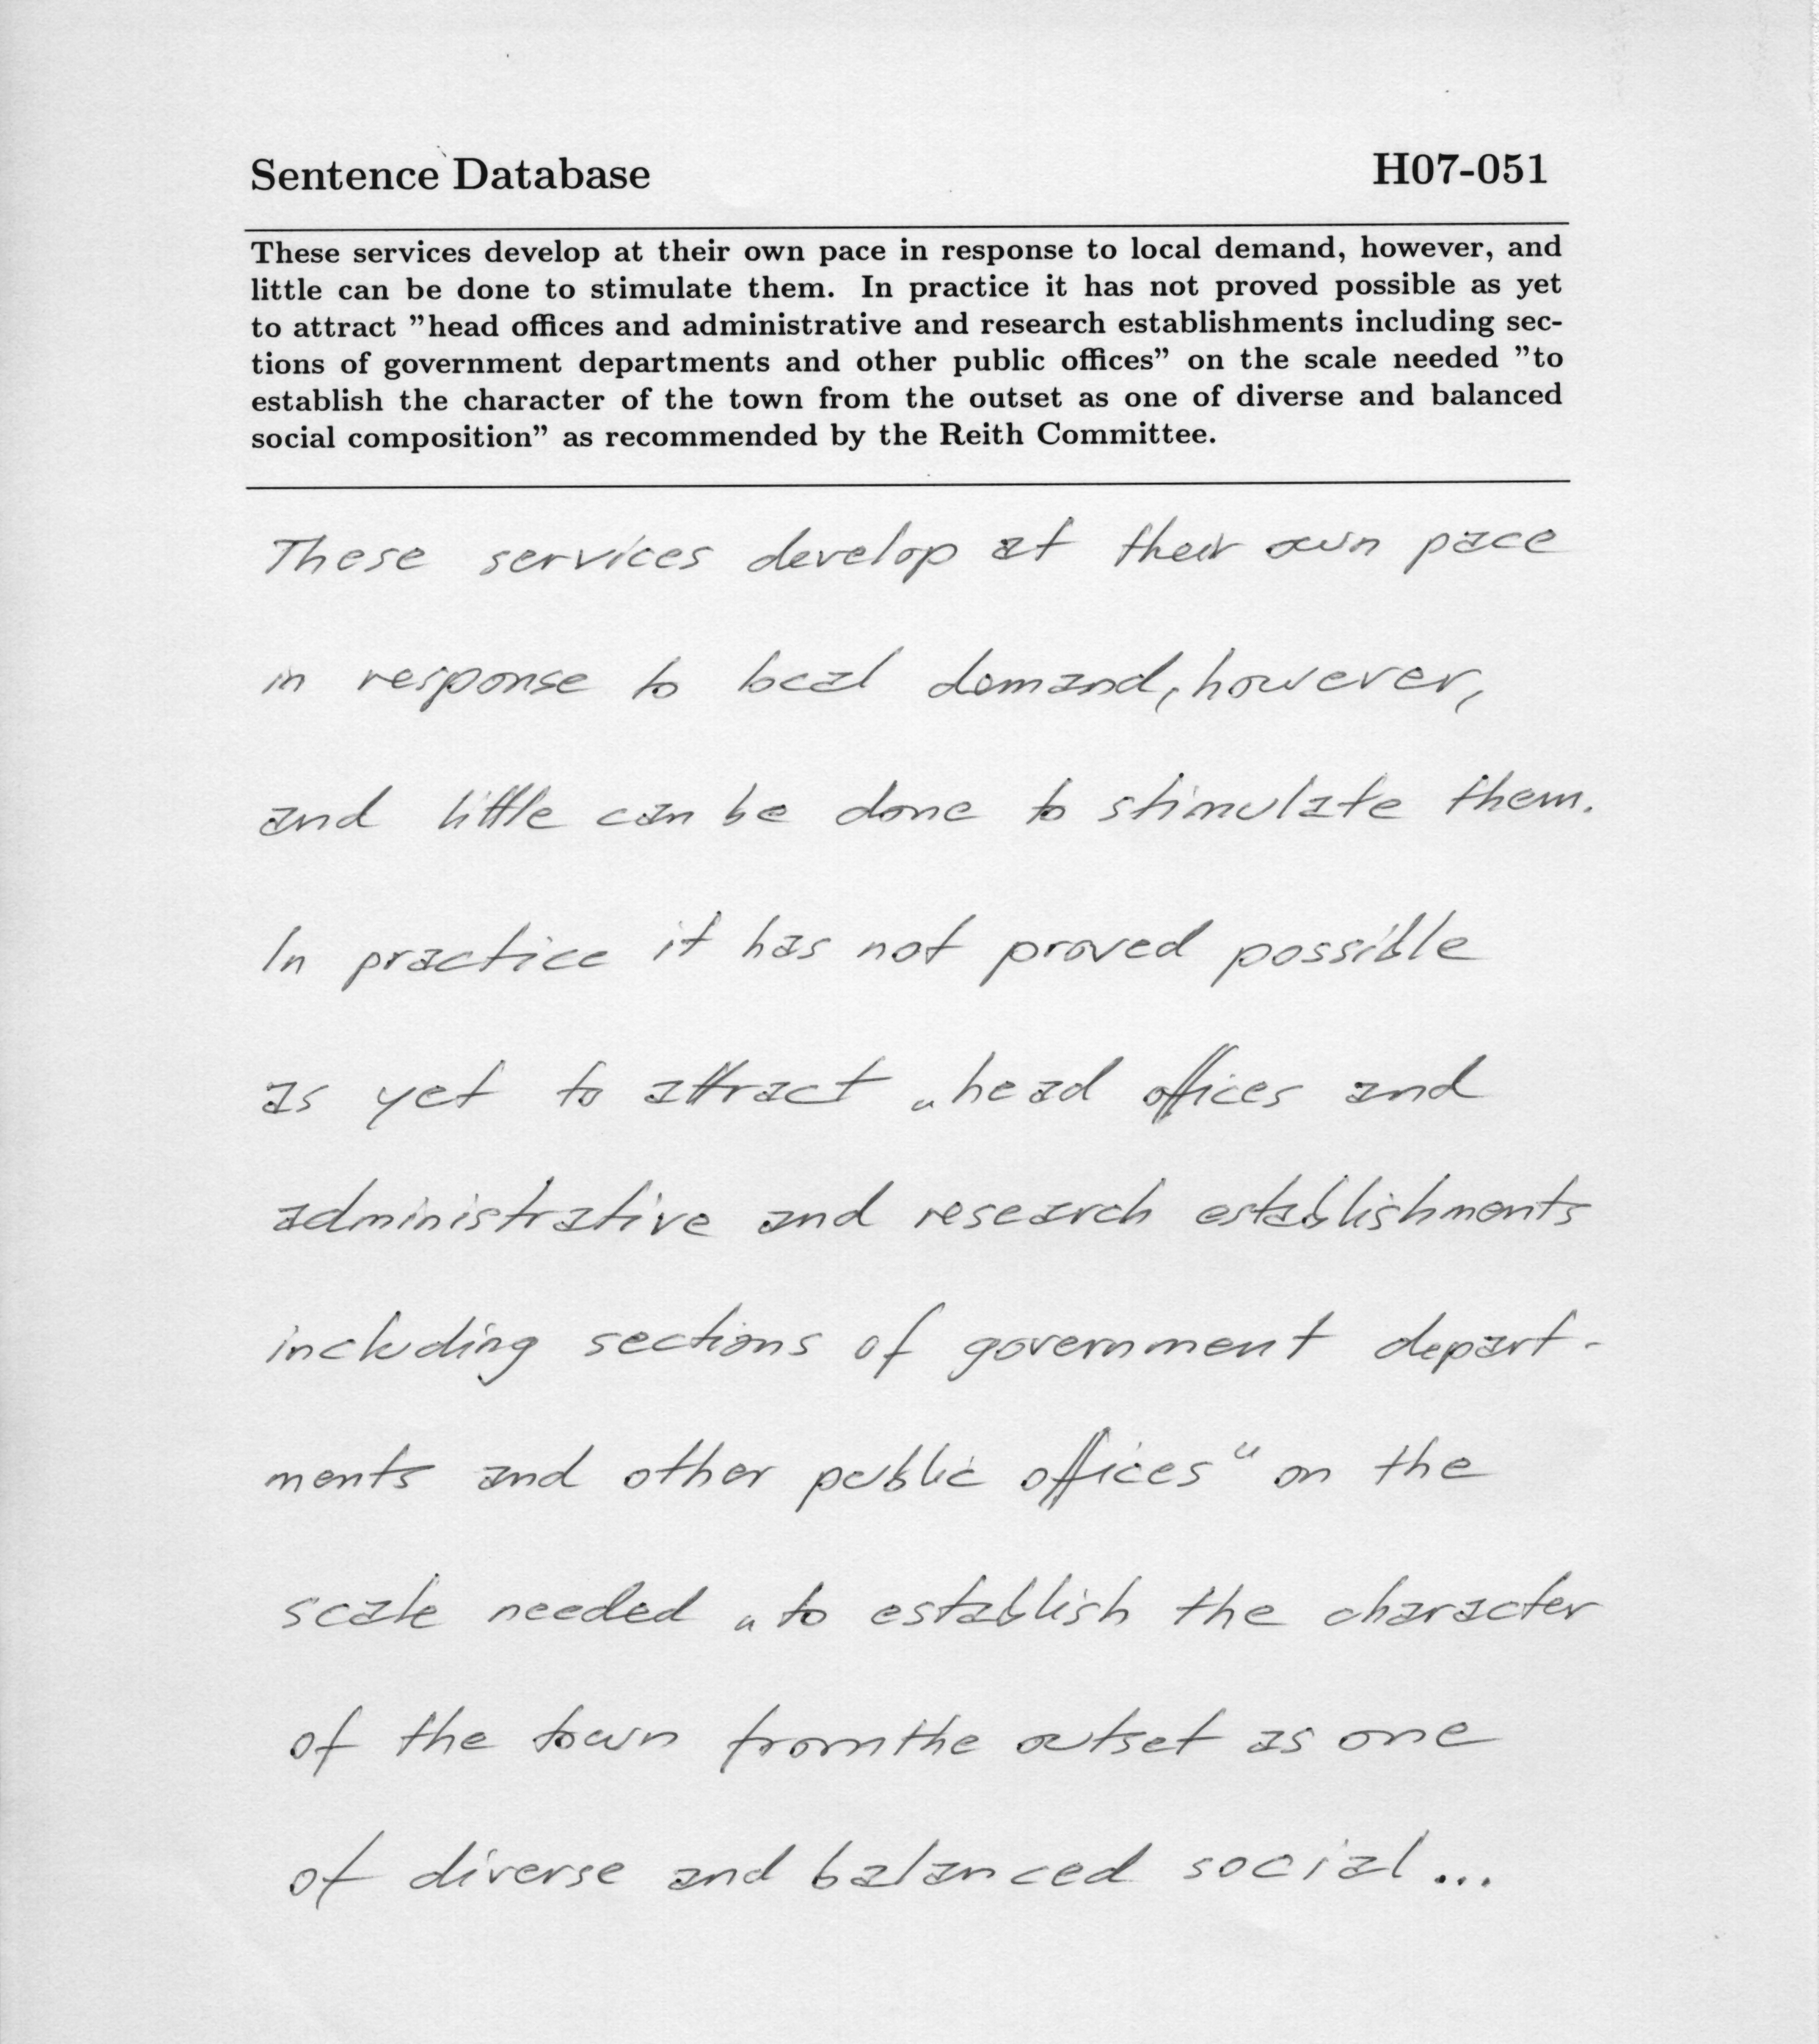 Sentence Database H07-051
These services develop at their own pace in response to local demand, however, and
little can be done to stimulate them. In practice it has not proved possible as yet
to attract ”head offices and administrative and research establishments including sec-
tions of government departments and other public offices” on the scale needed ”to
establish the character of the town from the outset as one of diverse and balanced
social composition” as recommended by the Reith Committee.
These services develop at their own pace
in response to local demand, however,
and little can be done to stimulate them.
In practice it has not proved possible
as yet to attract „head offices and
administrative and research establishments
including sections of government depart-
ments and other public offices“ on the
scale needed „to establish the character
of the town from the outset as one
of diverse and balanced social...